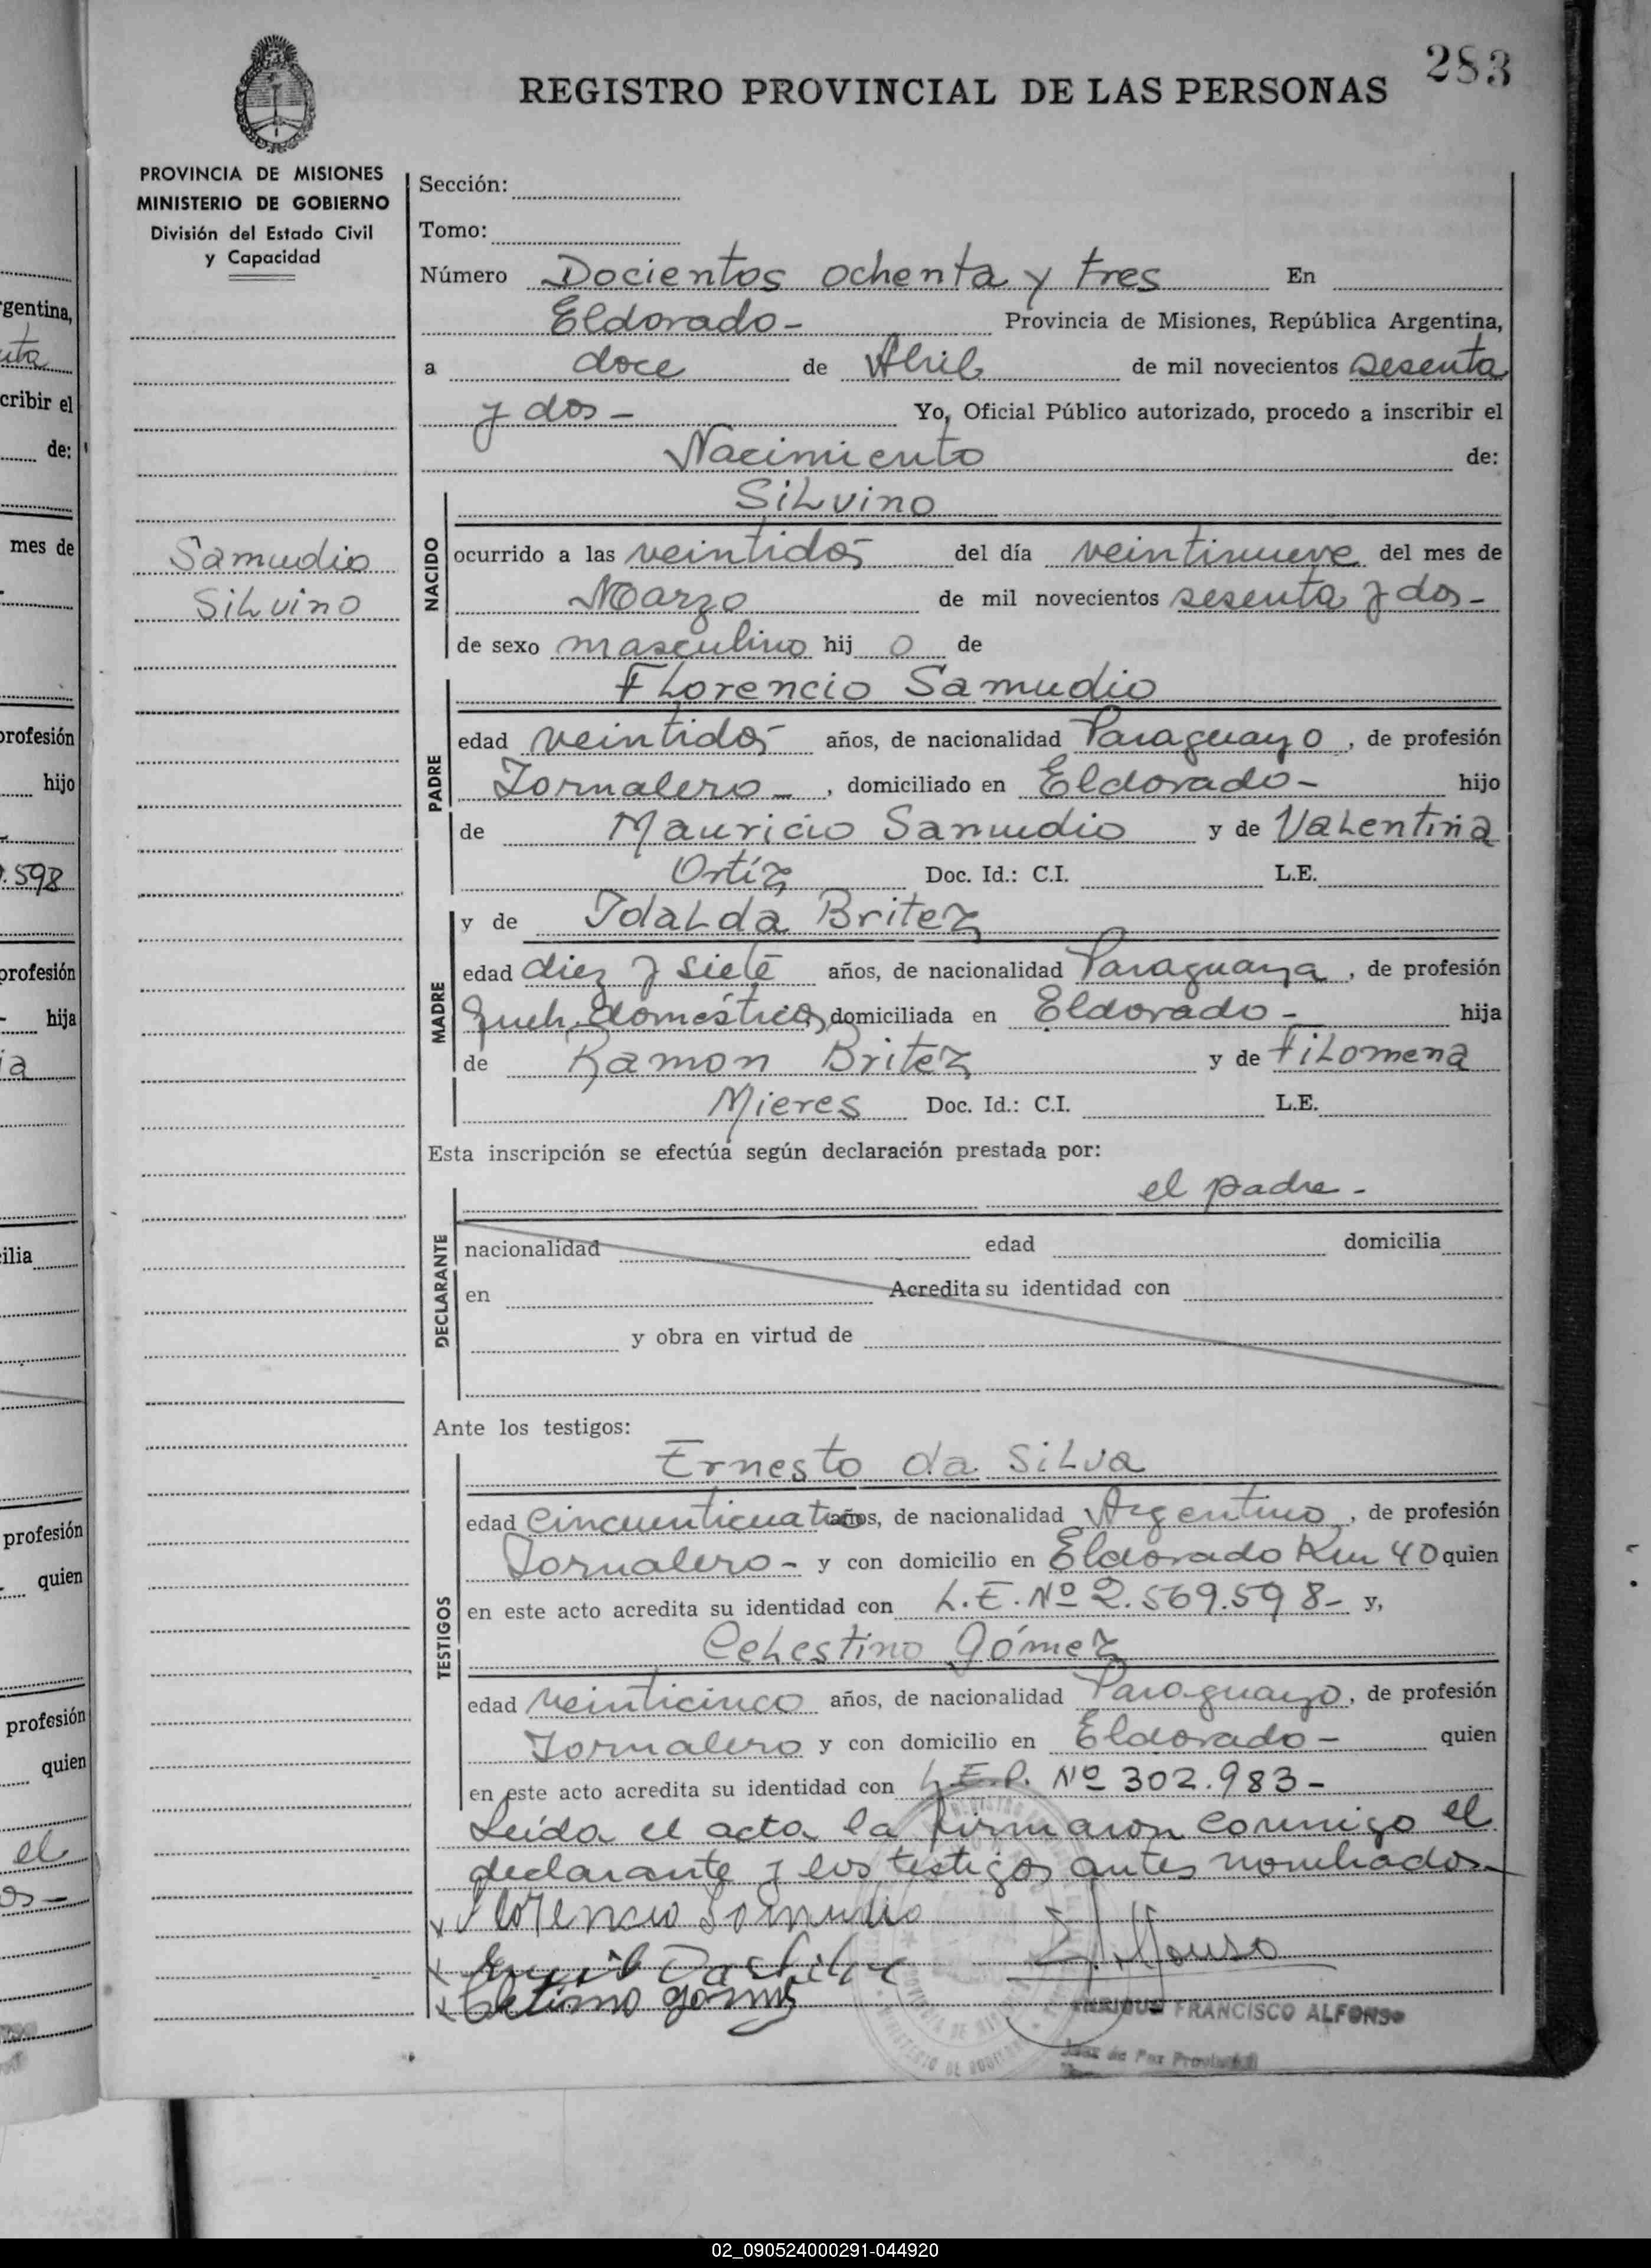 283
REGISTRO PROVINCIAL DE LAS PERSONAS
PROVINCIA DE MISIONES
MINISTERIO DE GOBIERNO
División del Estado Civil
y Capacidad
Sección:
Tomo:
Número Docientos ochenta y tres En
Eldorado - Provincia de Misiones, República Argentina,
a doce de Abril de mil novecientos sesenta
y dos - Yo, Oficial Público autorizado, procedo a inscribir el
Nacimiento de:
Samudio
Silvino
NACIDO
Silvino
ocurrido a las veintidós del día veintinueve del mes de
Marzo de mil novecientos sesenta y dos -
de sexo masculino hij o de
PADRE
Florencio Samudio
edad veintidós años, de nacionalidad Paraguayo, de profesión
Jornalero -, domiciliado en Eldorado - hijo
de Mauricio Samudio y de Valentina
Ortíz Doc. Id.: C.I. L.E.
MADRE
y de Idalda Britez
edad diez y siete años, de nacionalidad Paraguaya, de profesión
queh. domésticos, domiciliada en Eldorado - hija
de Ramon Britez y de Filomena
Mieres Doc. Id.: C.I. L.E.
Esta inscripción se efectúa según declaración prestada por:
el padre -
DECLARANTE
nacionalidad edad domicilia
en Acredita su identidad con
y obra en virtud de
Ante los testigos:
TESTIGOS
Ernesto da Silva
edad cincuenticuatro años, de nacionalidad Argentino, de profesión
Jornalero - y con domicilio en Eldorado Km 40 quien
en este acto acredita su identidad con L.E. Nº 2.569.598 - y,
Celestino Gómez
edad veinticinco años, de nacionalidad Paraguayo, de profesión
Jornalero y con domicilio en Eldorado - quien
en este acto acredita su identidad con L.E.P. Nº 302.983 -
Leída el acta la firmaron conmigo el
declarante y los testigos antes nombrados -
x Florencio Samudio
ENRIQUE FRANCISCO ALFONSO
Juez de Paz Provincial
gentina,
cribir el
de:
mes de
profesión
hijo
.598
profesión
hija
ia
ilia
profesión
quien
profesión
quien
el
os -
02_090524000291-044920